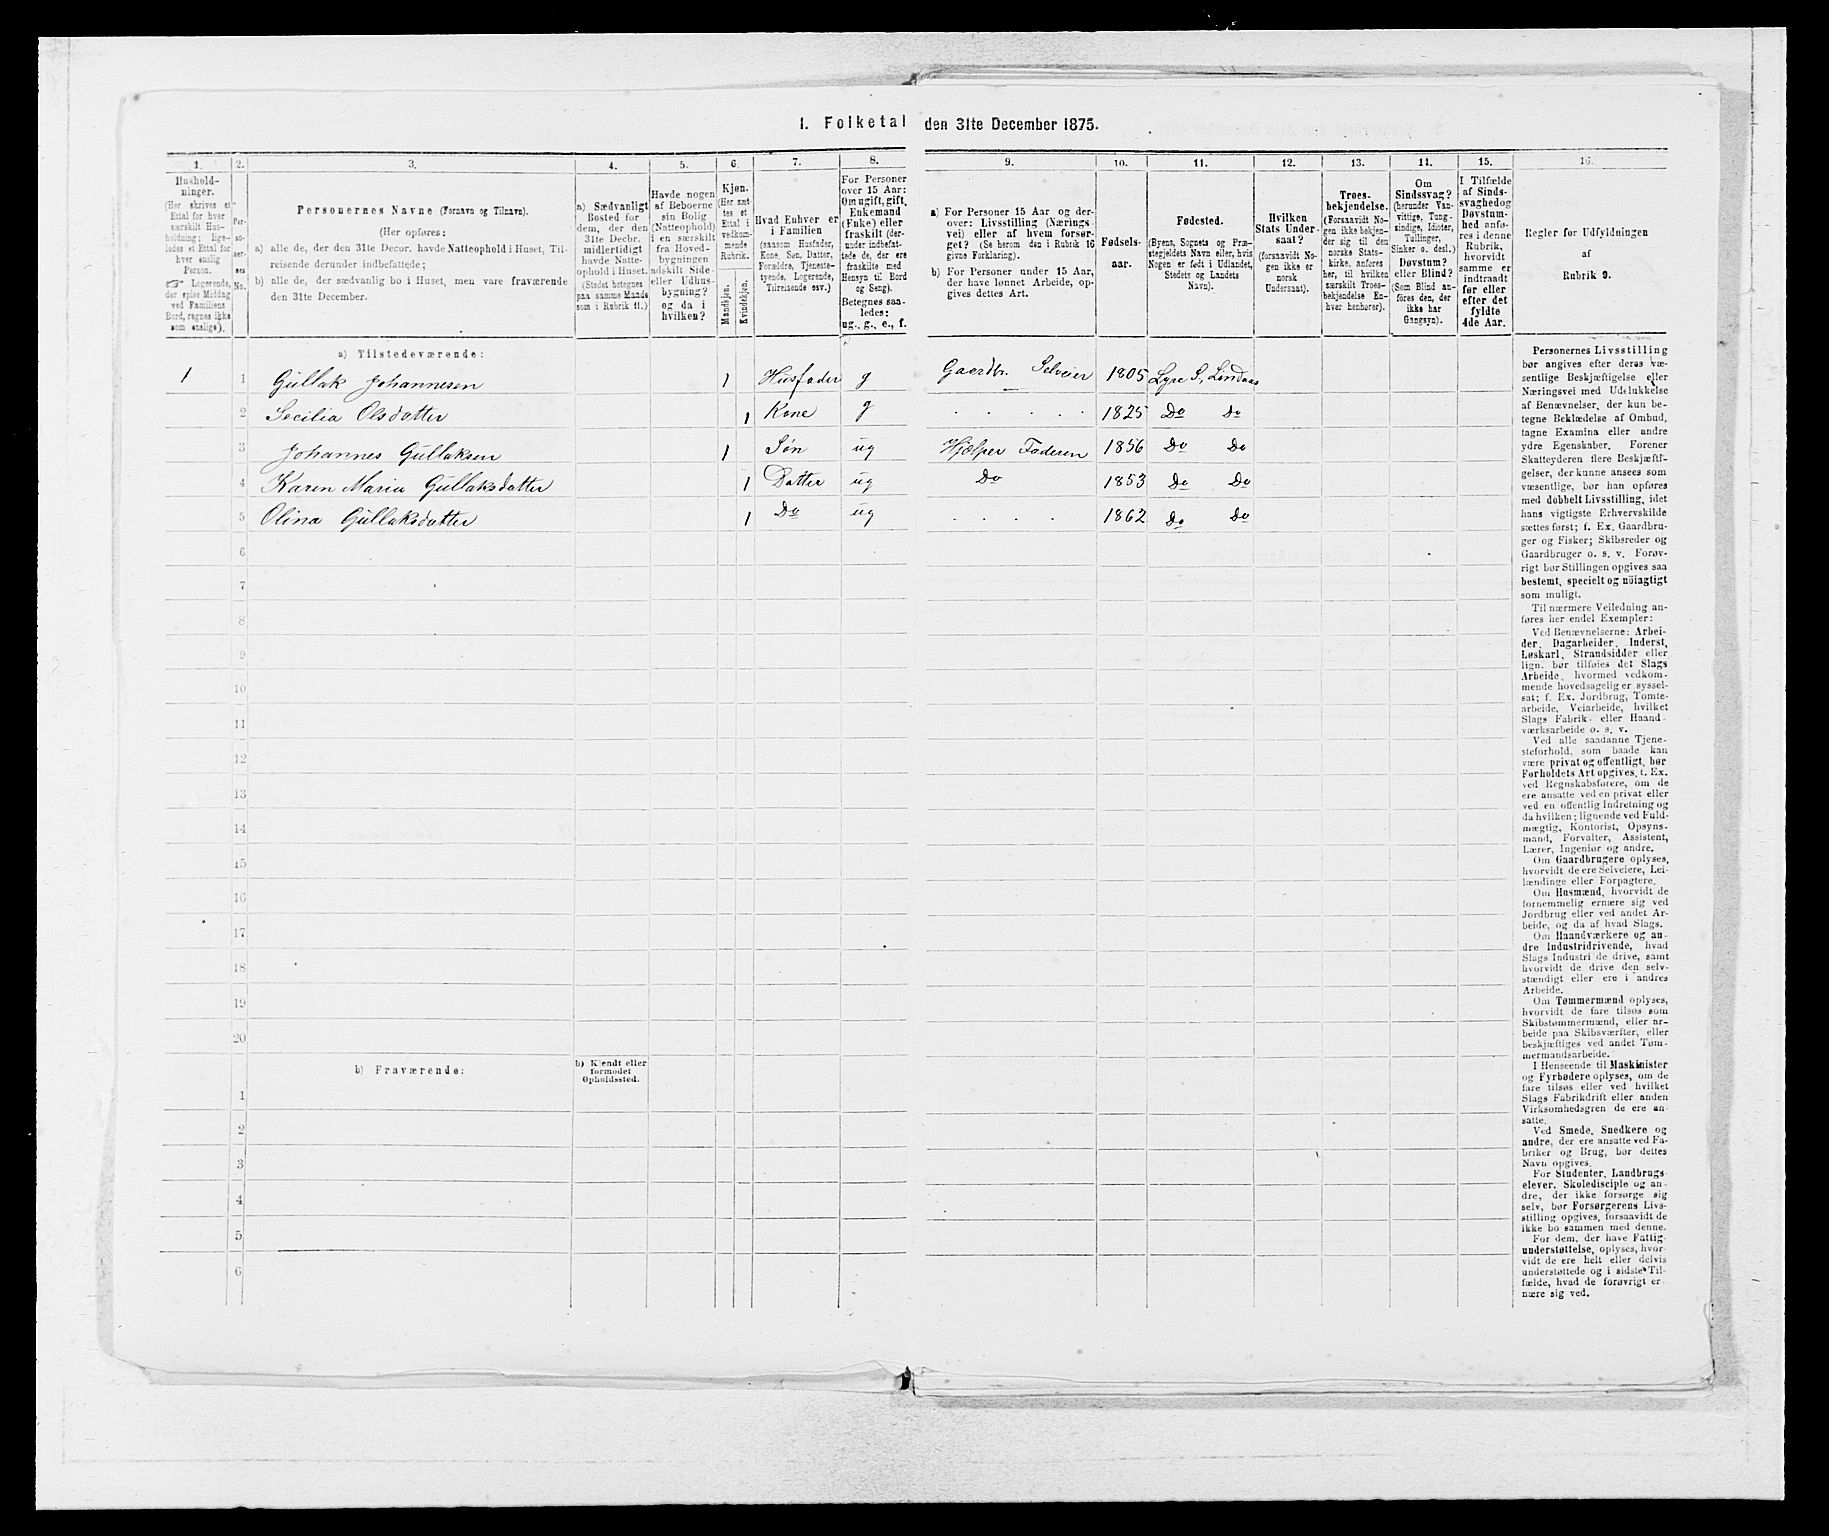 1. Folketal den 31te December 1875.
1. 2. 3. 4. 5. 6. 7. 8. 9. 10. 11. 12. 13. 14. 15. 16.
Hushold-
ninger.
(Her skrives et
Ettal for hver
særskilt Hus-
holdning; lige-
ledes et Ettal for
hver enslig
Person.
☞ Logerende,
der spise Middag
ved Familiens
Bord, regnes ikke
som enslige).
Per-
so-
ner-
nes
No.
Personernes Navne (Fornavn og Tilnavn).
(Her opføres:
a) alle de, der den 31te Decbr. havde Natteophold i Huset, Til-
reisende derunder indbefattede;
b) alle de, der sædvanlig bo i Huset, men vare fraværende
den 31te December.
a) Sædvanligt
Bosted for
dem, der den
31te Decbr.
midlertidigt
havde Natte-
ophold i Huset.
(Stedet betegnes
paa samme Maade
som i Rubrik 11.)
Havde nogen
af Beboerne
sin Bolig
(Natteophold)
i en særskilt
fra Hoved-
bygningen
adskilt Side-
eller Udhus-
bygning?
og da i
hvilken?
Kjøn.
(Her sæt-
tes et
Ettal i
vedkom-
mende
Rubrik.
Mandkjøn.
Kvindekjøn.
Hvad Enhver er
i Familien
(saasom Husfader,
Kone, Søn, Datter,
Forældre, Tjeneste-
tyende, Logerende,
Tilreisende osv.)
For Personer
over 15 Aar:
Om ugift, gift,
Enkemand
(Enke) eller
fraskilt (der-
under indbefat-
tede de, der ere
fraskilte med
Hensyn til Bord
og Seng).
Betegnes saa-
ledes:
ug., g., e., f.
a) For Personer 15 Aar og der-
over: Livsstilling (Nærings-
vei) eller af hvem forsør-
get? (Se herom den i Rubrik 16
givne Forklaring).
b) For Personer under 15 Aar,
der have lønnet Arbeide, op-
gives dettes Art.
Fødsels-
aar.
Fødested.
(Byens, Sognets og Præ-
stegjeldets Navn eller, hvis
Nogen er født i Udlandet,
Stedets og Landets
Navn).
Hvilken
Stats Under-
saat?
(forsaavidt No-
gen ikke er
norsk
Undersaat).
Troes-
bekjendelse.
(Forsaavidt No-
gen ikke bekjen-
der sig til den
norske Stats-
kirke, anføres
her, til hvilken
særskilt Troes-
bekjendelse En-
hver henhører).
Om
Sindssvag?
(herunder Van-
vittige, Tung-
sindige, Idioter,
Tullinger,
Sinker o. desl.)
eller Blind?
Døvstum?
(Som Blind an-
føres den, der
ikke har
Gangsyn).
I Tilfælde
af Sinds-
svaghed og
Døvstum-
hed anfø-
res i denne
Rubrik,
hvorvidt
samme er
indtraadt
før eller
efter det
fyldte
4de Aar.
Regler for Udfyldningen
af
Rubrik 9.
a) Tilstedeværende:
1 1 Gullak Johannesen 1 Husfader g Gaardbr. Selveier 1805 Lyre S., Lindaas
2 Secilia Olsdatter 1 Kone g 1825 Do Do
3 Johannes Gullaksen 1 Søn ug Hjælper Faderen 1856 Do Do
4 Karen Maria Gullaksdatter 1 Datter ug Do 1853 Do Do
5 Olina Gullaksdatter 1 Do ug 1862 Do Do
6
7
8
9
10
11
12
13
14
15
16
17
18
19
20
b) Fraværende:
b) Kjendt eller
formodet
Opholdssted.
1
2
3
4
5
6
Personernes Livsstilling
bør angives efter deres væ-
sentlige Beskjæftigelse eller
Næringsvei med Udelukkelse
af Benævnelser, der kun be-
tegne Beklædelse af Ombud,
tagne Examina eller andre
ydre Egenskaber. Forener
Skatteyderen flere Beskjæfti-
gelser, der kunne ansees som
væsentlige, bør han opføres
med dobbelt Livsstilling, idet
hans vigtigste Erhvervskilde
sættes først; f. Ex. Gaardbru-
ger og Fisker; Skibsreder og
Gaardbruger o. s. v. Forøv-
rigt bør Stillingen opgives saa
bestemt, specielt og nöiagtigt
som muligt.
Til nærmere Veiledning an-
føres her endel Exempler:
Ved Benævnelserne: Arbei-
der, Dagarbeider, Inderst,
Løskarl, Strandsidder eller
lign. bør tilføies det Slags
Arbeide, hvormed vedkom-
mende hovedsagelig er syssel-
sat; f. Ex. Jordbrug, Tomte-
arbeide, Veiarbeide, hvilket
Slags Fabrik- eller Haand-
værksarbeide o. s. v.
Ved alle saadanne Tjene-
steforhold, som baade kan
være privat og offentligt, bør
Forholdets Art opgives, t. Ex.
ved Regnskabsførere, om de
ere ansatte ved en privat eller
ved en offentlig Indretning og
da hvilken; lignende ved Fuld-
mægtig, Kontorist, Opsyns-
mand, Forvalter, Assistent,
Lærer, Ingeniør og andre.
Om Gaardbrugere oplyses,
hvorvidt de ere Selveiere, Lei-
lændinge eller Forpagtere.
Om Husmænd, hvorvidt de
fornemmelig ernære sig ved
Jordbrug eller ved andet Ar-
beide, og da af hvad Slags.
Om Haandværkere og an-
dre Industridrivende, hvad
Slags Industri de drive, samt
hvorvidt de drive den selv-
stændigt eller ere i andres
Arbeide.
Om Tømmermænd oplyses,
hvorvidt de fare tilsøs som
Skibstømmermænd, eller ar-
beide paa Skibsværfter, eller
beskjæftiges ved andet Tøm-
mermandsarbeide.
I Henseende til Maskinister
og Fyrbødere oplyses, om de
fare tilsøs eller ved hvilket
Slags Fabrikdrift eller anden
Virksomhedsgren de ere an-
satte.
Ved Smede, Snedkere og
andre, der ere ansatte ved Fa-
briker og Brug, bør dettes
Navn opgives.
For Studenter, Landbrugs-
elever, Skoledisciple og an-
dre, der ikke forsørge sig
selv, bør Forsørgerens Livs-
stilling opgives, forsaavidt de
ikke bo sammen med denne.
For dem, der have Fattig-
understøttelse, oplyses, hvor-
vidt de ere helt eller delvis
understøttede og i sidste Til-
fælde, hvad de forøvrigt er-
nære sig ved.